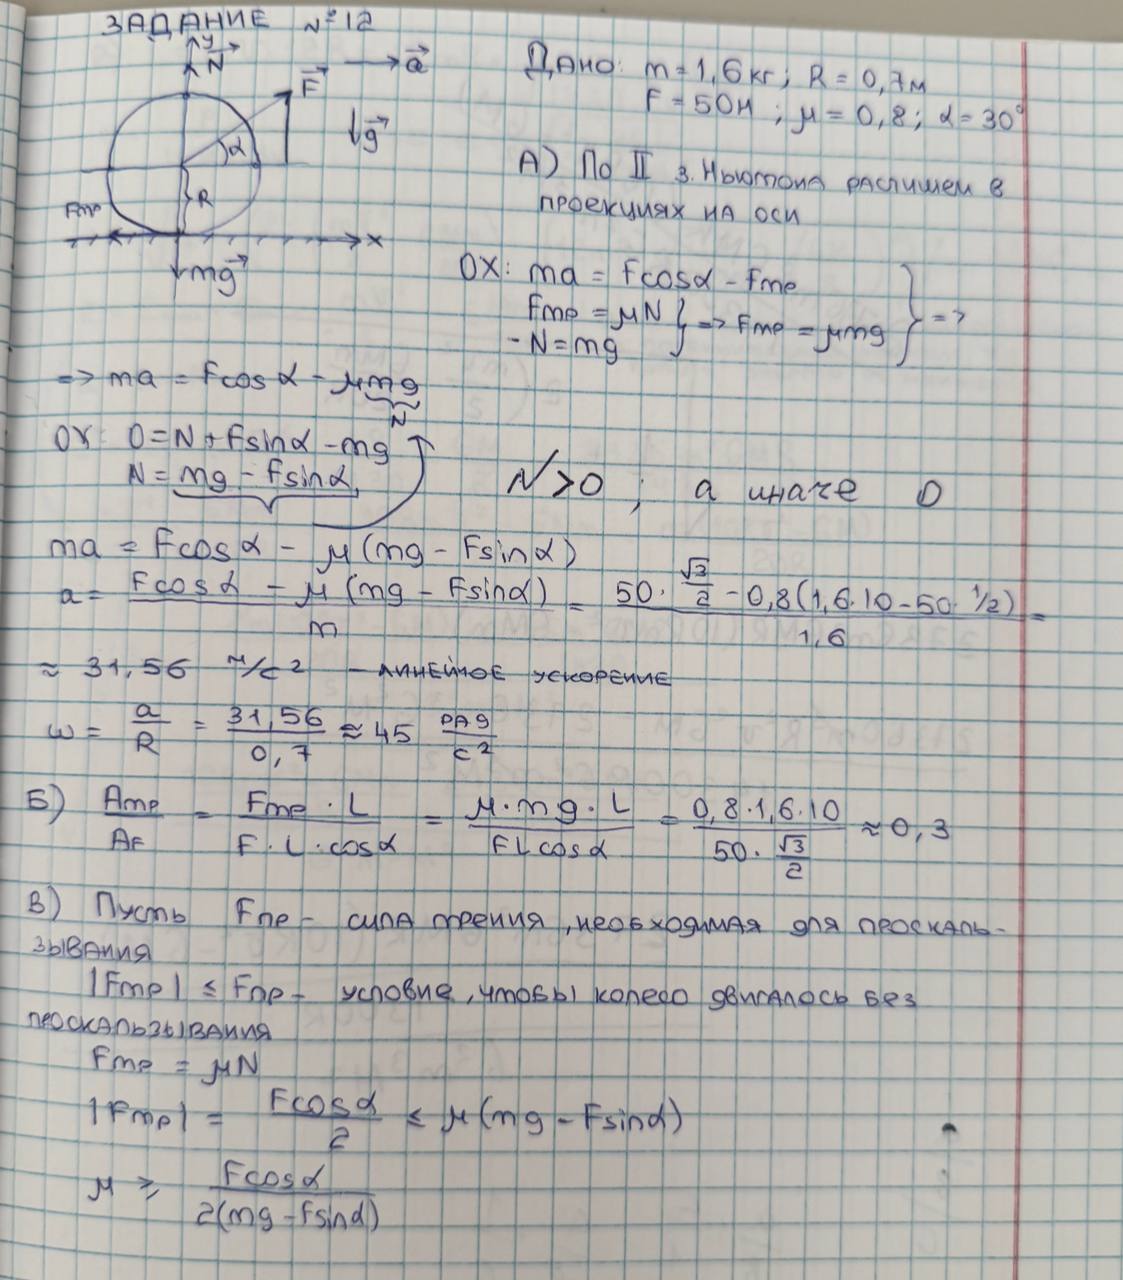 ЗАДАНИЕ №12
y
N
F
a
g
α
R
Fтр
x
mg
Дано: m = 1,6 кг; R = 0,7м
F = 50Н ; μ = 0,8 ; α = 30°
А) По II з. Ньютона распишем в
проекциях на оси
OX: ma = Fcosα - Fтр
Fтр = μN
- N = mg } => Fтр = μmg } =>
=> ma = Fcosα - μmg
N
OY: 0 = N + Fsinα - mg
N = mg - Fsinα
N > 0 ; а иначе 0
ma = Fcosα - μ(mg - Fsinα)
a = (Fcosα - μ(mg - Fsinα))/m = (50·√3/2 - 0,8(1,6·10 - 50·1/2))/1,6 =
≈ 31,56 м/с² - линейное ускорение
ω = a/R = 31,56/0,7 ≈ 45 рад/с²
Б) Aтр/AF = Fтр·L/F·L·cosα = μ·mg·L/FLcosα = 0,8·1,6·10/50·√3/2 ≈ 0,3
В) Пусть Fпр - сила трения, необходимая для проскаль-
зывания
|Fтр| ≤ Fпр - условие, чтобы колесо двигалось без
проскальзывания
Fтр = μN
|Fтр| = Fcosα/2 ≤ μ(mg - Fsinα)
μ ≥ Fcosα/2(mg - Fsinα)